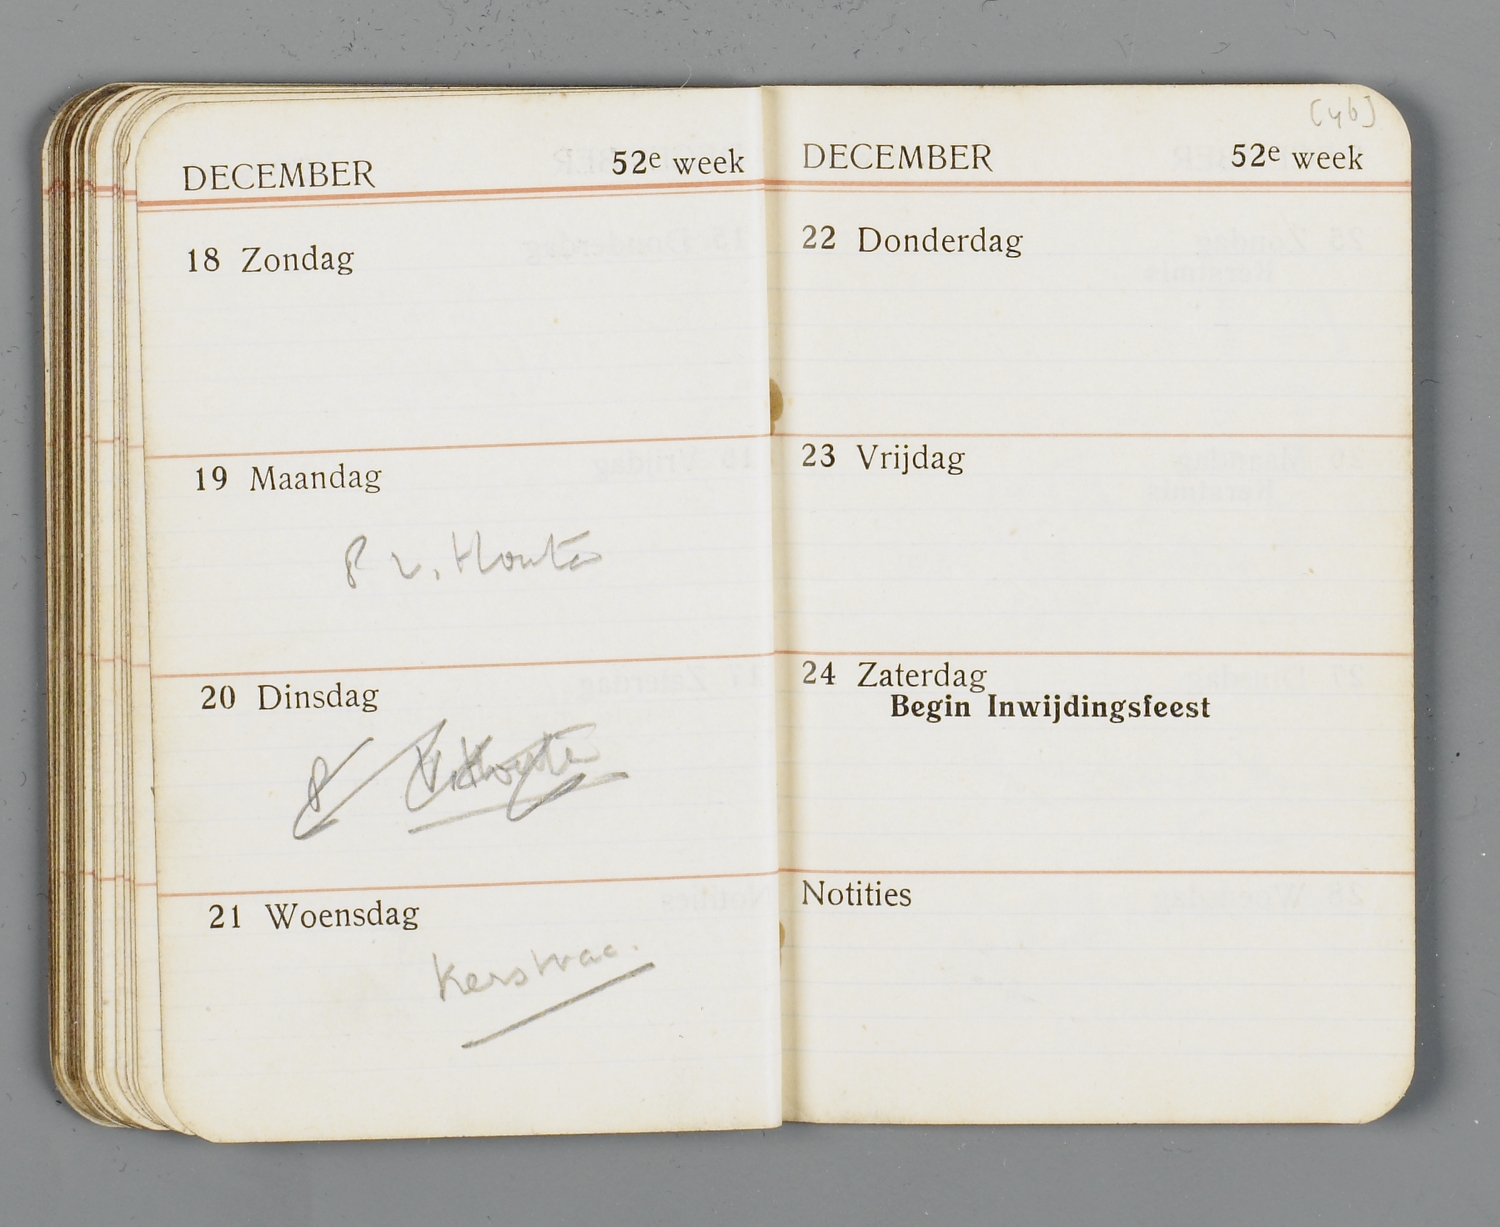 DECEMBER 52e week
18 Zondag
19 Maandag
P v. Houte
20 Dinsdag
P v. Houte
21 Woensdag
Kerstvac.
[46]
DECEMBER 52e week
22 Donderdag
23 Vrijdag
24 Zaterdag
Begin Inwijdingsfeest
Notities